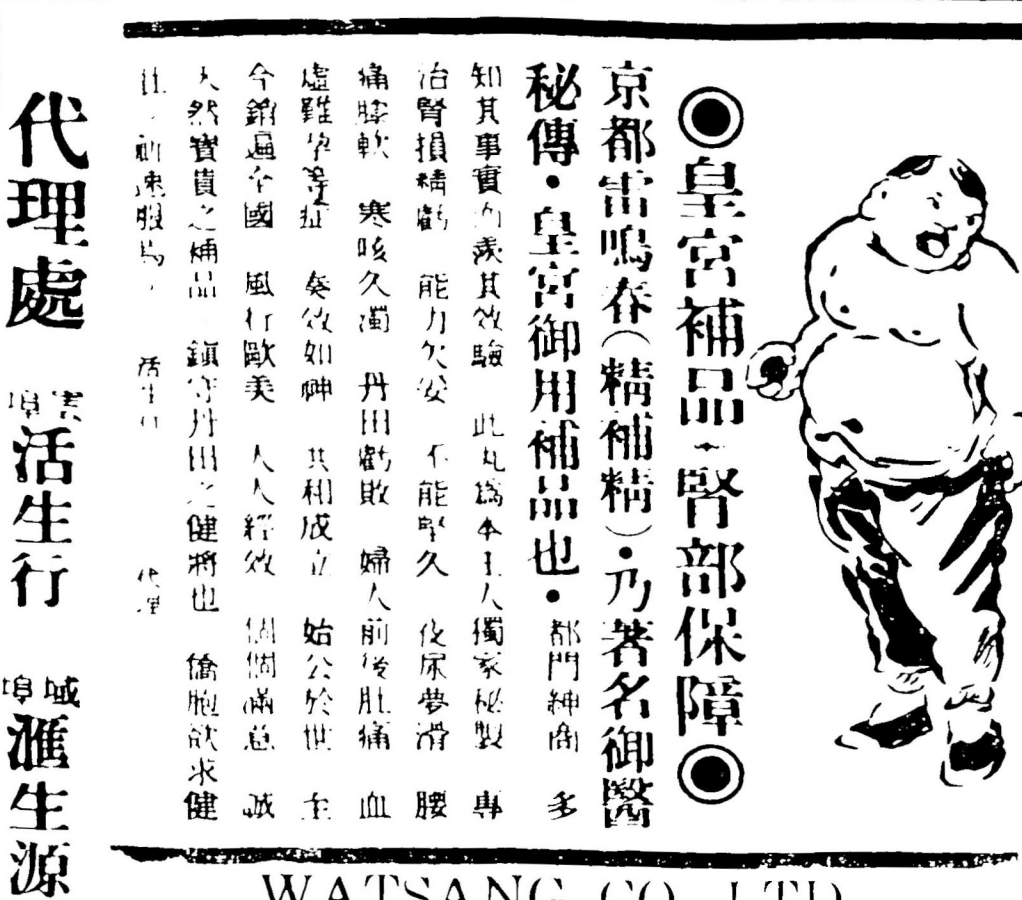 ◉皇宮補品·腎部保障◉
京都雷鳴春(精補精)·乃著名御醫
秘傳·皇宮御用補品也· 都門紳商 多
知其事實 其效驗 此丸為本主人獨家秘製 專
治腎損精虧 能力欠安 不能堅久 夜尿夢滑 腰
痛膝軟 寒咳久濁 丹田虧敗 婦人前後肚痛 血
虛難孕等症 奏效如神 共和成立 始公於世 至
今銷遍全國 風行歐美 人人經效 個個滿意 誠
天然寶貴之補品 鎮守丹田之健將也 僑胞欲求健
速服 活生 代理
代理處 活生行 域埠滙生源
WATSANG CO. LTD